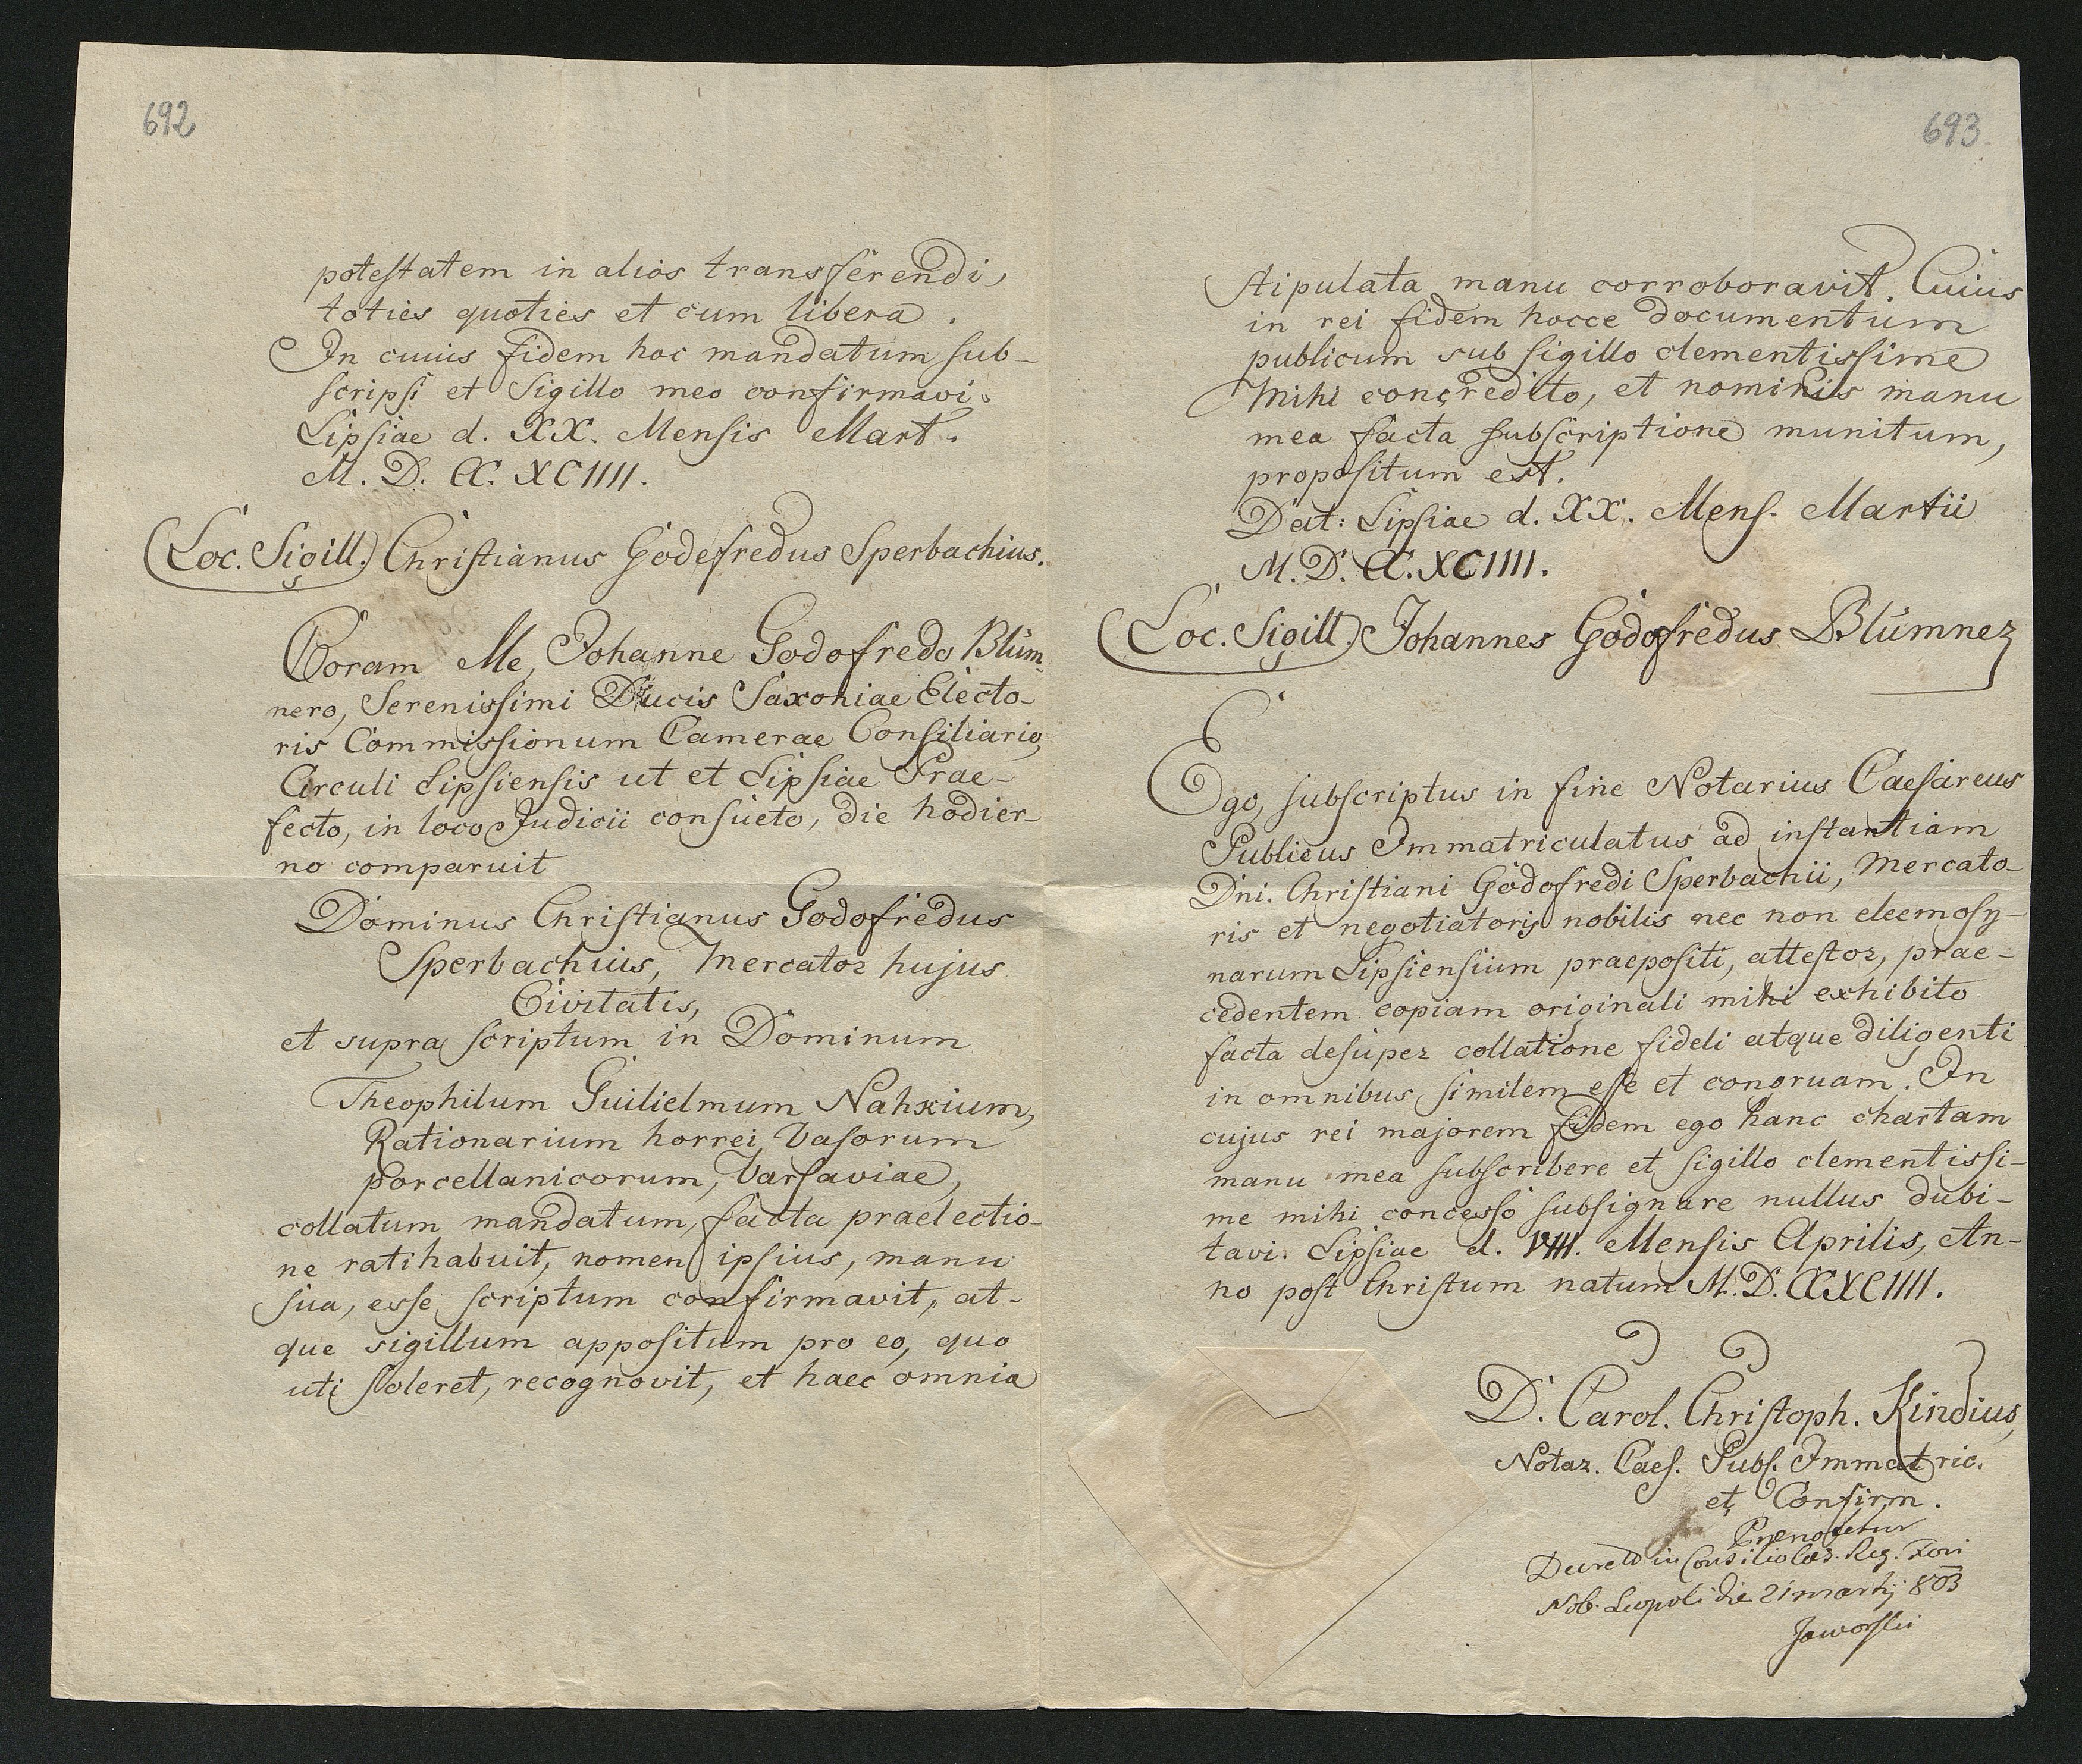 692
potestatem in alios transferendi,
toties quoties et cum libera.
In cuius fidem hoc mandatum sub-
scripsi et Sigillo meo confirmavi.
Lipsiae d. XX. Mensis Mart.
M. D. CC. XCIIII.
(Loc. Sigill.) Christianus Godefredus Sperbachius.
Coram Me, Johanne Godofredo Blüm-
nero, Serenissimi Ducis Saxoniae Electo-
ris Commissionum Camerae Consiliario,
Circuli Lipsiensis ut et Lipsiae Prae-
fecto, in loco Judicii consueto, die hodier-
no comparuit
Dominus Christianus Godofredus
Sperbachius, Mercator hujus
Civitatis,
et supra scriptum in Dominum
Theophilum Guilielmum Nahxium,
Rationarium horrei Vasorum
porcellanicorum, Varsaviae,
collatum mandatum, facta praelectio-
ne ratihabuit, nomen ipsius, manu
sua, esse scriptum confirmavit, at-
que sigillum appositum pro eo, quo
uti soleret, recognovit, et haec omnia
693
stipulata manu corroboravit. Cuius
in rei fidem hocce documentum
publicum sub sigillo clementissime
mihi concredito, et nominis manu
mea facta subscriptione munitum,
propositum est.
Dat: Lipsiae d. XX. Mens. Martii
M. D. CC. XCIIII.
(Loc. Sigill.) Johannes Godofredus Blümner
Ego, subscriptus in fine Notarius Caesareus
Publicus Immatriculatus ad instantiam
Dni. Christiani Godofredi Sperbachii, Mercato-
ris et negotiatoris nobilis nec non eleemosy-
narum Lipsiensium praepositi, attestor, prae-
cedentem copiam originali mihi exhibito
facta desuper collatione fideli atque diligenti
in omnibus similem esse et congruam. In
cujus rei majorem fidem ego hanc chartam
manu mea subscribere et sigillo clementissi-
me mihi concesso subsignare nullus dubi-
tavi. Lipsiae d. VIII. Mensis Aprilis, An-
no post Christum natum M. D. CCXCIIII.
D. Carol. Christoph. Kindius,
Notar. Caes. Publ. Immatric.
et Confirm.
Prenotetur
Decreto in Consilio Caes. Reg. Fori
Nob. Leopoli die 21 martij 803
Jaworski